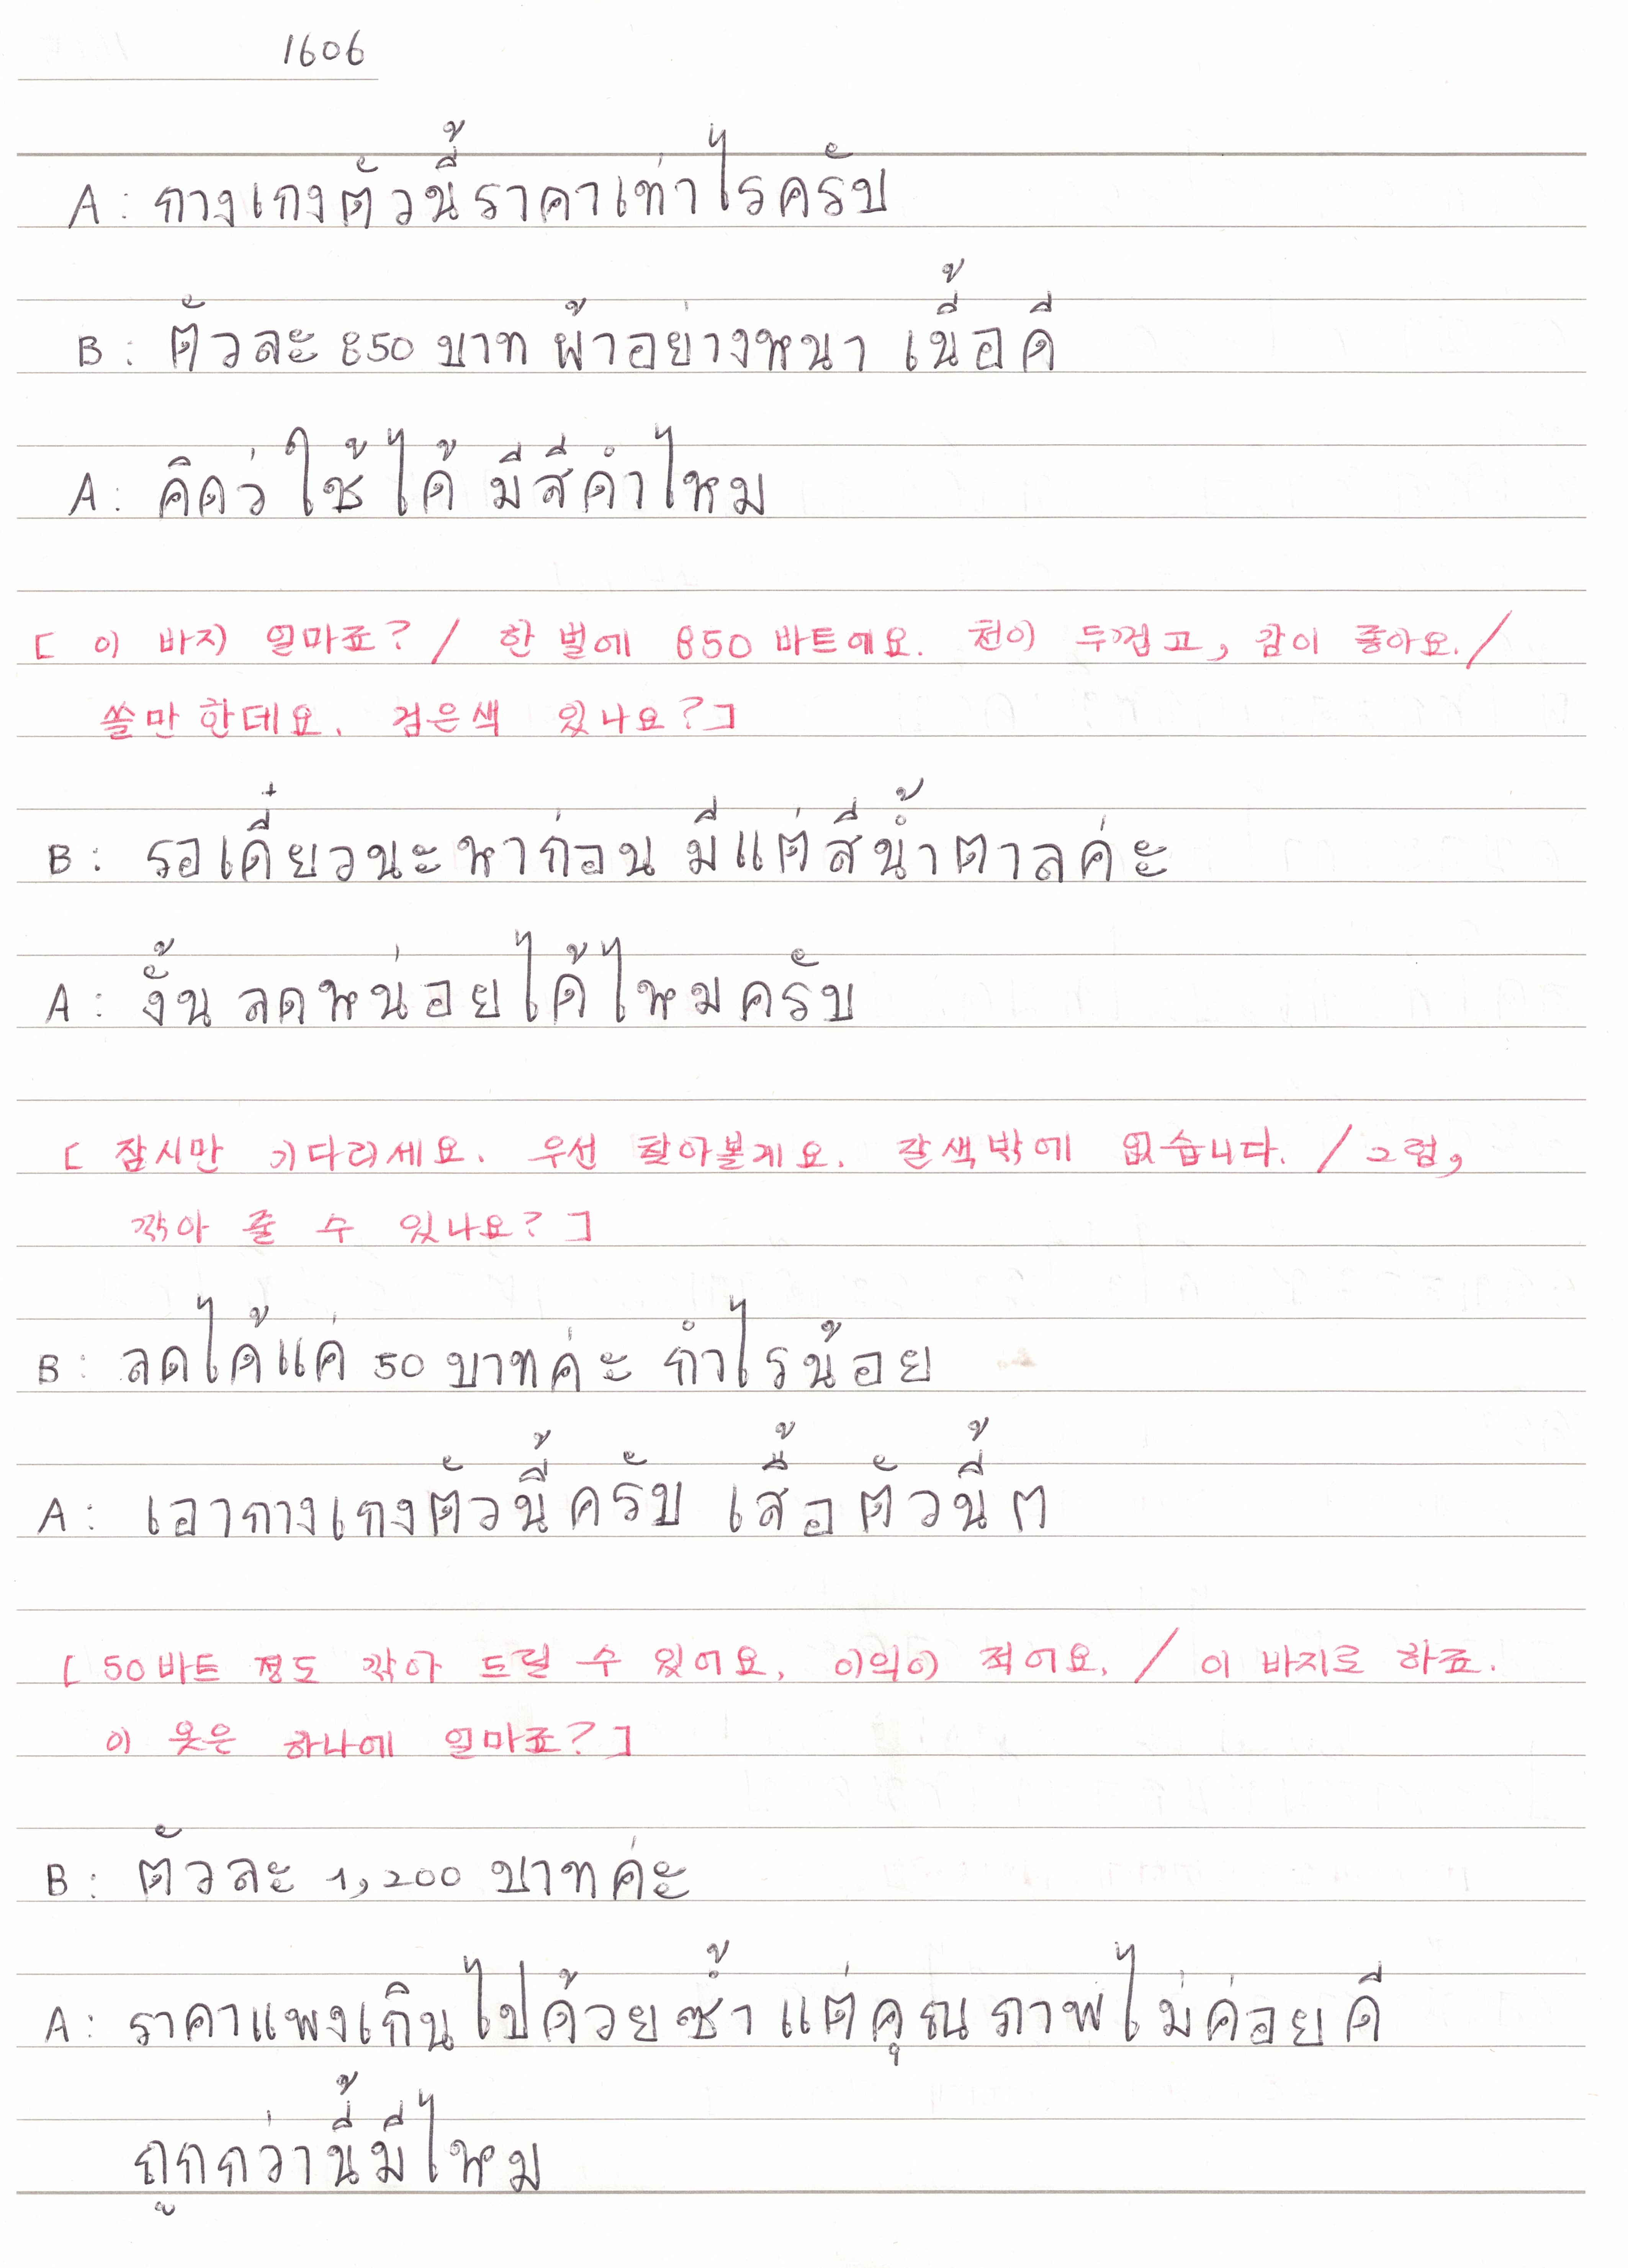 1606
A: กางเกงตัวนี้ราคาเท่าไรครับ
B: ตัวละ 850 บาท ผ้าอย่างหนา เนื้อดี
A: คิดว่ ใช้ได้ มีสีดำไหม
[ 이 바지 얼마죠? / 한 벌에 850 바트에요. 천이 두껍고, 감이 좋아요. /
쓸만 한데요. 검은색 있나요?]
B: รอเดี๋ยวนะ หาก่อน มีแต่สีน้ำตาลค่ะ
A: งั้น ลดหน่อยได้ไหมครับ
[ 잠시만 기다리세요. 우선 찾아볼게요. 갈색밖에 없습니다. / 그럼,
깍아 줄 수 있나요?]
B: ลดได้แค่ 50 บาทค่ะ กำไรน้อย
A: เอากางเกงตัวนี้ครับ เสื้อตัวนี้ ต
[ 50바트 정도 깍아 드릴 수 있어요. 이익이 적어요. / 이 바지로 하죠.
이 옷은 하나에 얼마죠?]
B: ตัวละ 1,200 บาทค่ะ
A: ราคาแพงเกินไปด้วยซ้ำ แต่คุณภาพไม่ค่อยดี
ถูกกว่านี้มีไหม